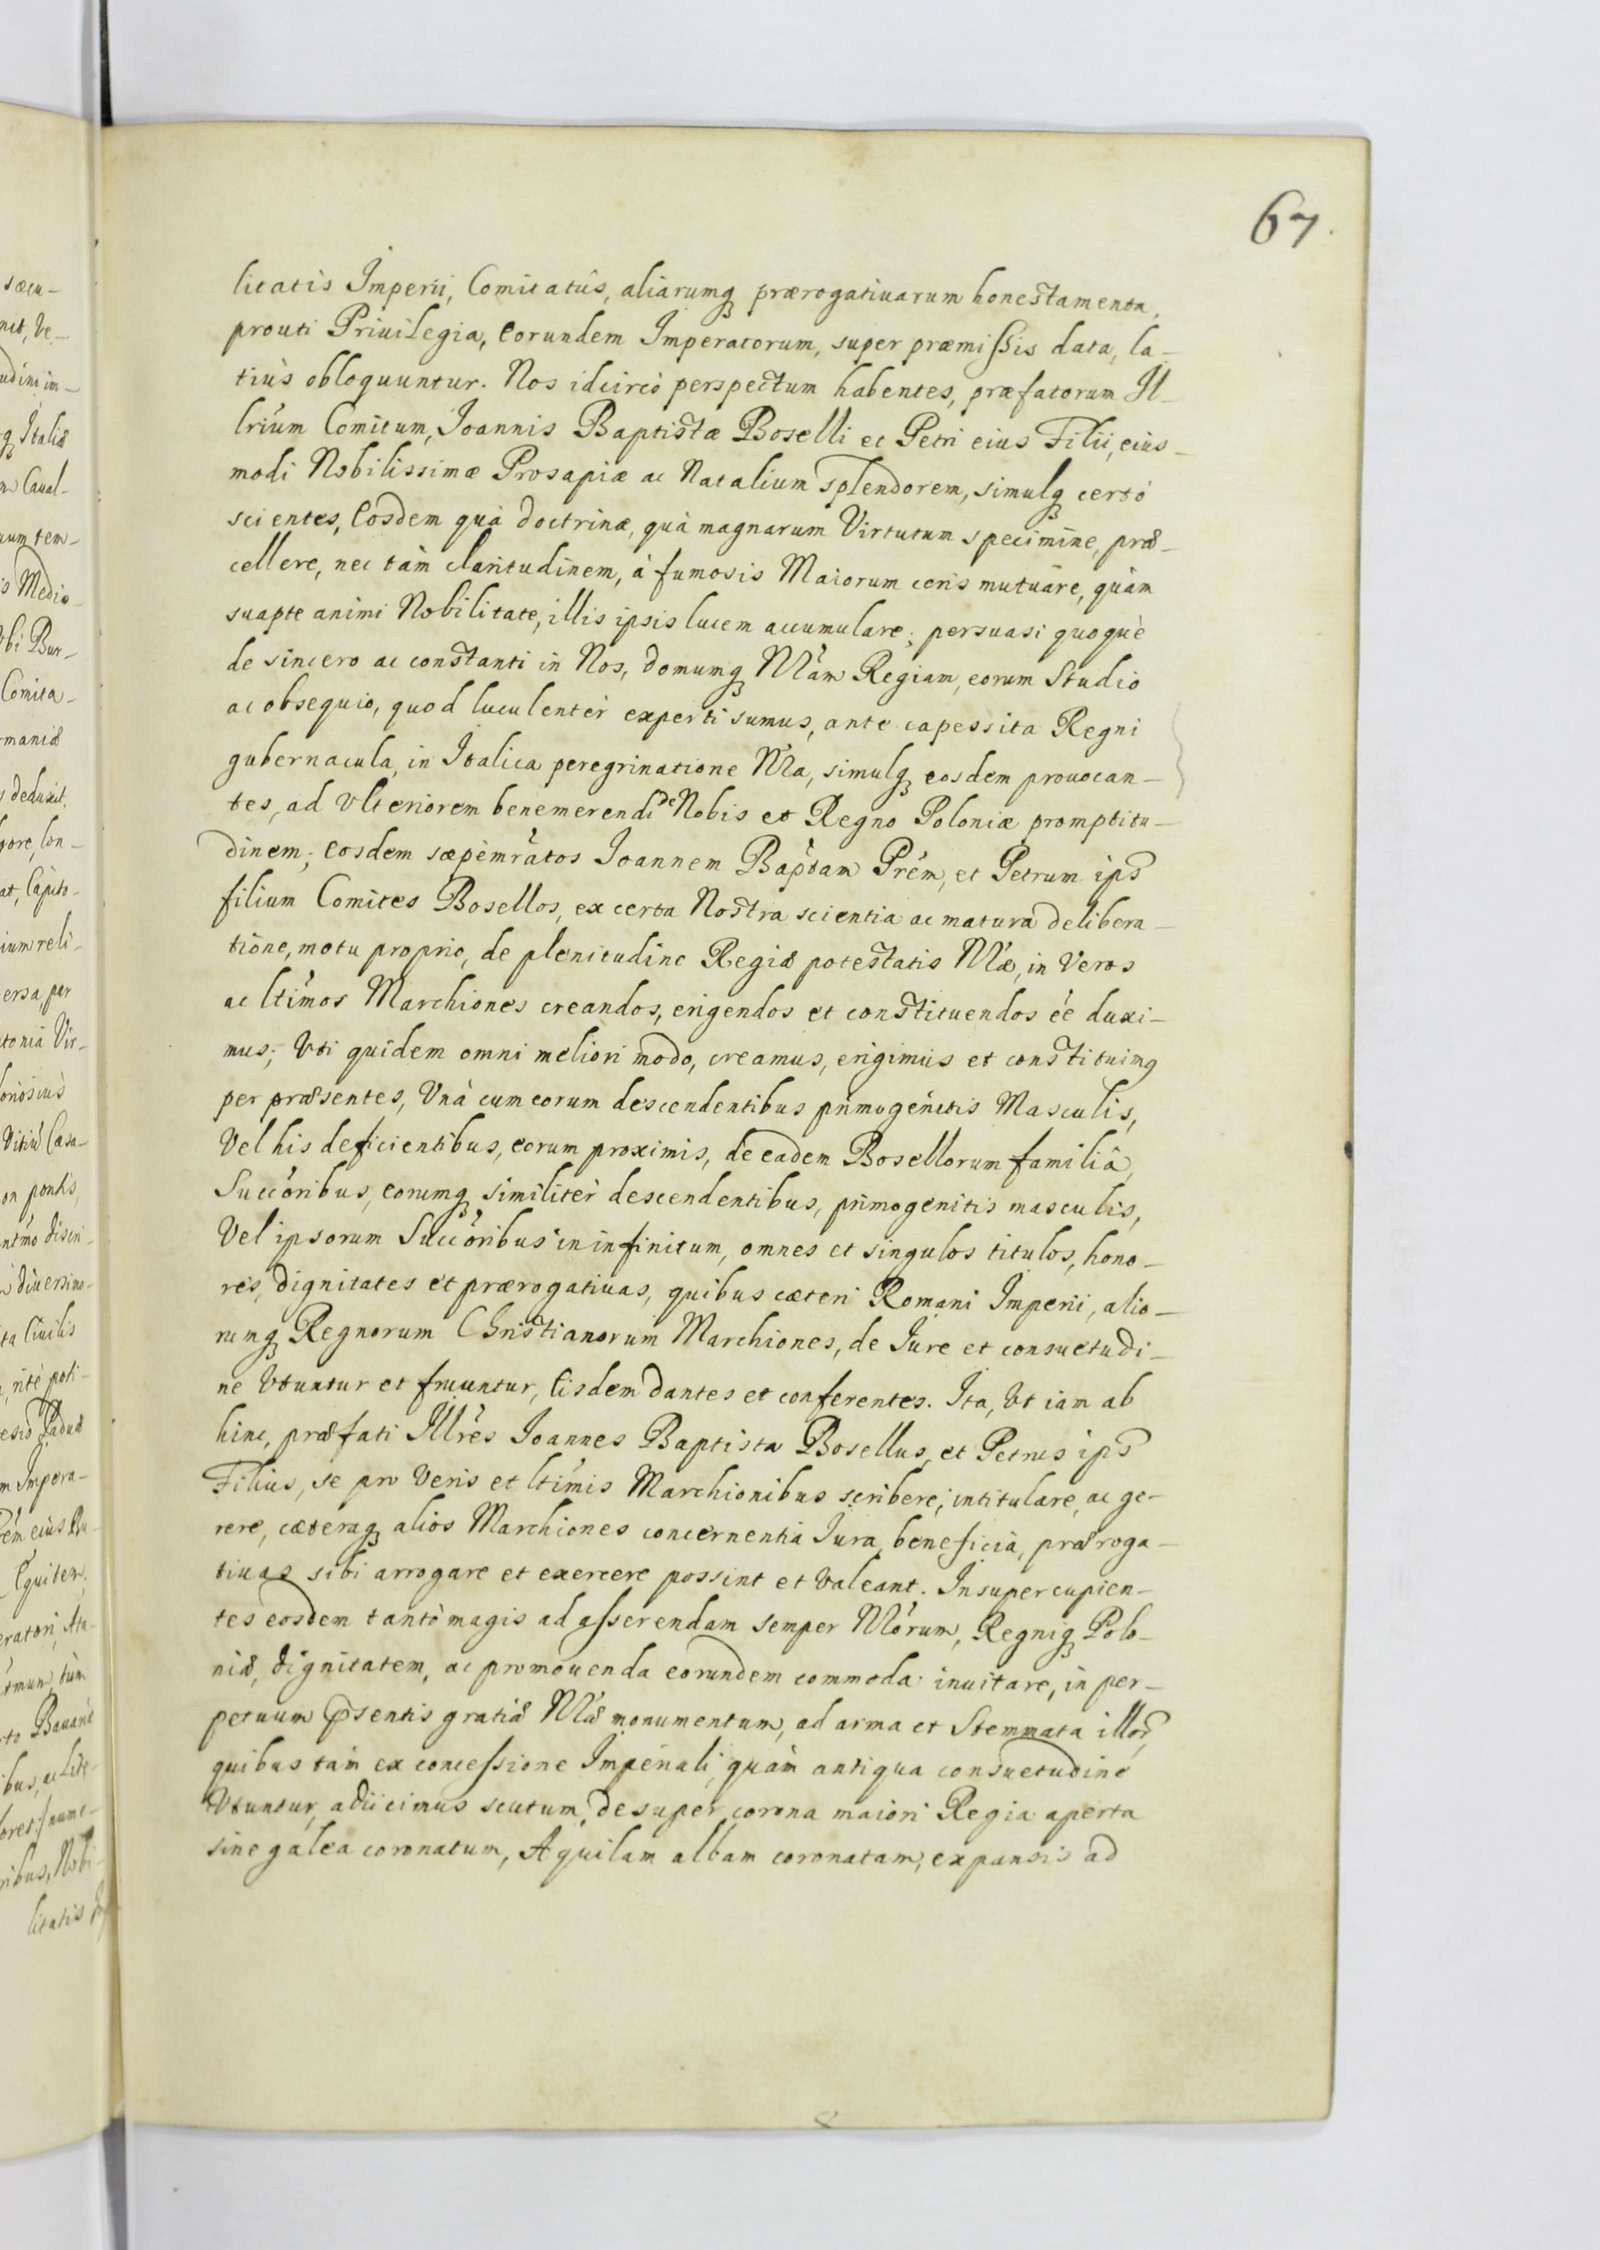 67.
litatis Imperii, Comitatûs, aliarumq̨ prærogatiuarum honestamenta,
prouti Priuilegia, eorundem Imperatorum, super præmissis data, la-
tiùs obloquuntur. Nos idcircò perspectum habentes, præfatorum Il-
lrium Comitum, Joannis Baptistæ Boselli et Petri eius Filii, eius-
modi Nobilissimæ Prosapiæ ac Natalium splendorem, simulq̨ certò
scientes, Eosdem quà doctrinæ, quà magnarum Virtutum specimine, præ-
cellere, nec tàm claritudinem, à fumosis Maiorum ceris mutuare, quàm
suapte animi Nobilitate, illis ipsis lucem accumulare; persuasi quoquè
de sincero ac constanti in Nos, domumq̨ Nr̃am Regiam, eorum Studio
ac obsequio, quod luculentèr experti sumus, ante capessita Regni
gubernacula, in Italica peregrinatione Nr̃a, simulq̨ eosdem prouocan-
tes, ad Vlteriorem benemerendi de Nobis et Regno Poloniæ promptitu-
dinem; eosdem sæpèmr̃atos Joannem Bap̃tam Pr̃em, et Petrum ips
filium Comites Bosellos, ex certa Nostra scientia ac matura delibera-
tione, motu proprio, de plenitudine Regiæ potestatis Nr̃æ, in Veros
ac ltimos Marchiones creandos, erigendos et constituendos ẽe duxi-
mus; Vti quidem omni meliori modo, creamus, erigimus et constituimq̨
per præsentes, Vnà cum eorum descendentibus primogenitis Masculis,
Vel his deficientibus, eorum proximis, de eadem Bosellorum familiâ,
Succ̃oribus, eorumq̨ similitèr descendentibus, primogenitis masculis,
Vel ipsorum Succ̃oribus in infinitum, omnes et singulos titulos, hono-
res, dignitates et prærogatiuas, quibus cæteri Romani Imperii, alio-
rumq̨ Regnorum Christianorum Marchiones, de Jure et consuetudi-
ne Vtuntur et fruuntur, Eisdem dantes et conferentes. Ita, Vt iam ab
hinc, præfati Illr̃es Joannes Baptista Bosellus, et Petrus ips
Filius, se pro Veris et ltimis Marchionibus scribere, intitulare, ac ge-
rere, cæteraq̨ alios Marchiones concernentia Jura, beneficia, præroga-
tiuas sibi arrogare et exercere possint et Valeant. Insuper cupien-
tes eosdem tantò magis ad asserendam semper Nr̃orum, Regniq̨ Polo-
niæ, dignitatem, ac promouenda eorundem commoda inuitare, in per-
petuum p̃sentis gratiæ Nr̃æ monumentum, ad arma et Stemmata illor,
quibus tàm ex concessione Imperiali, quàm antiqua consuetudine
Vtuntur, adiicimus scutum, desuper corona maiori Regia aperta
sine galea coronatum, Aquilam albam coronatam, expansis ad